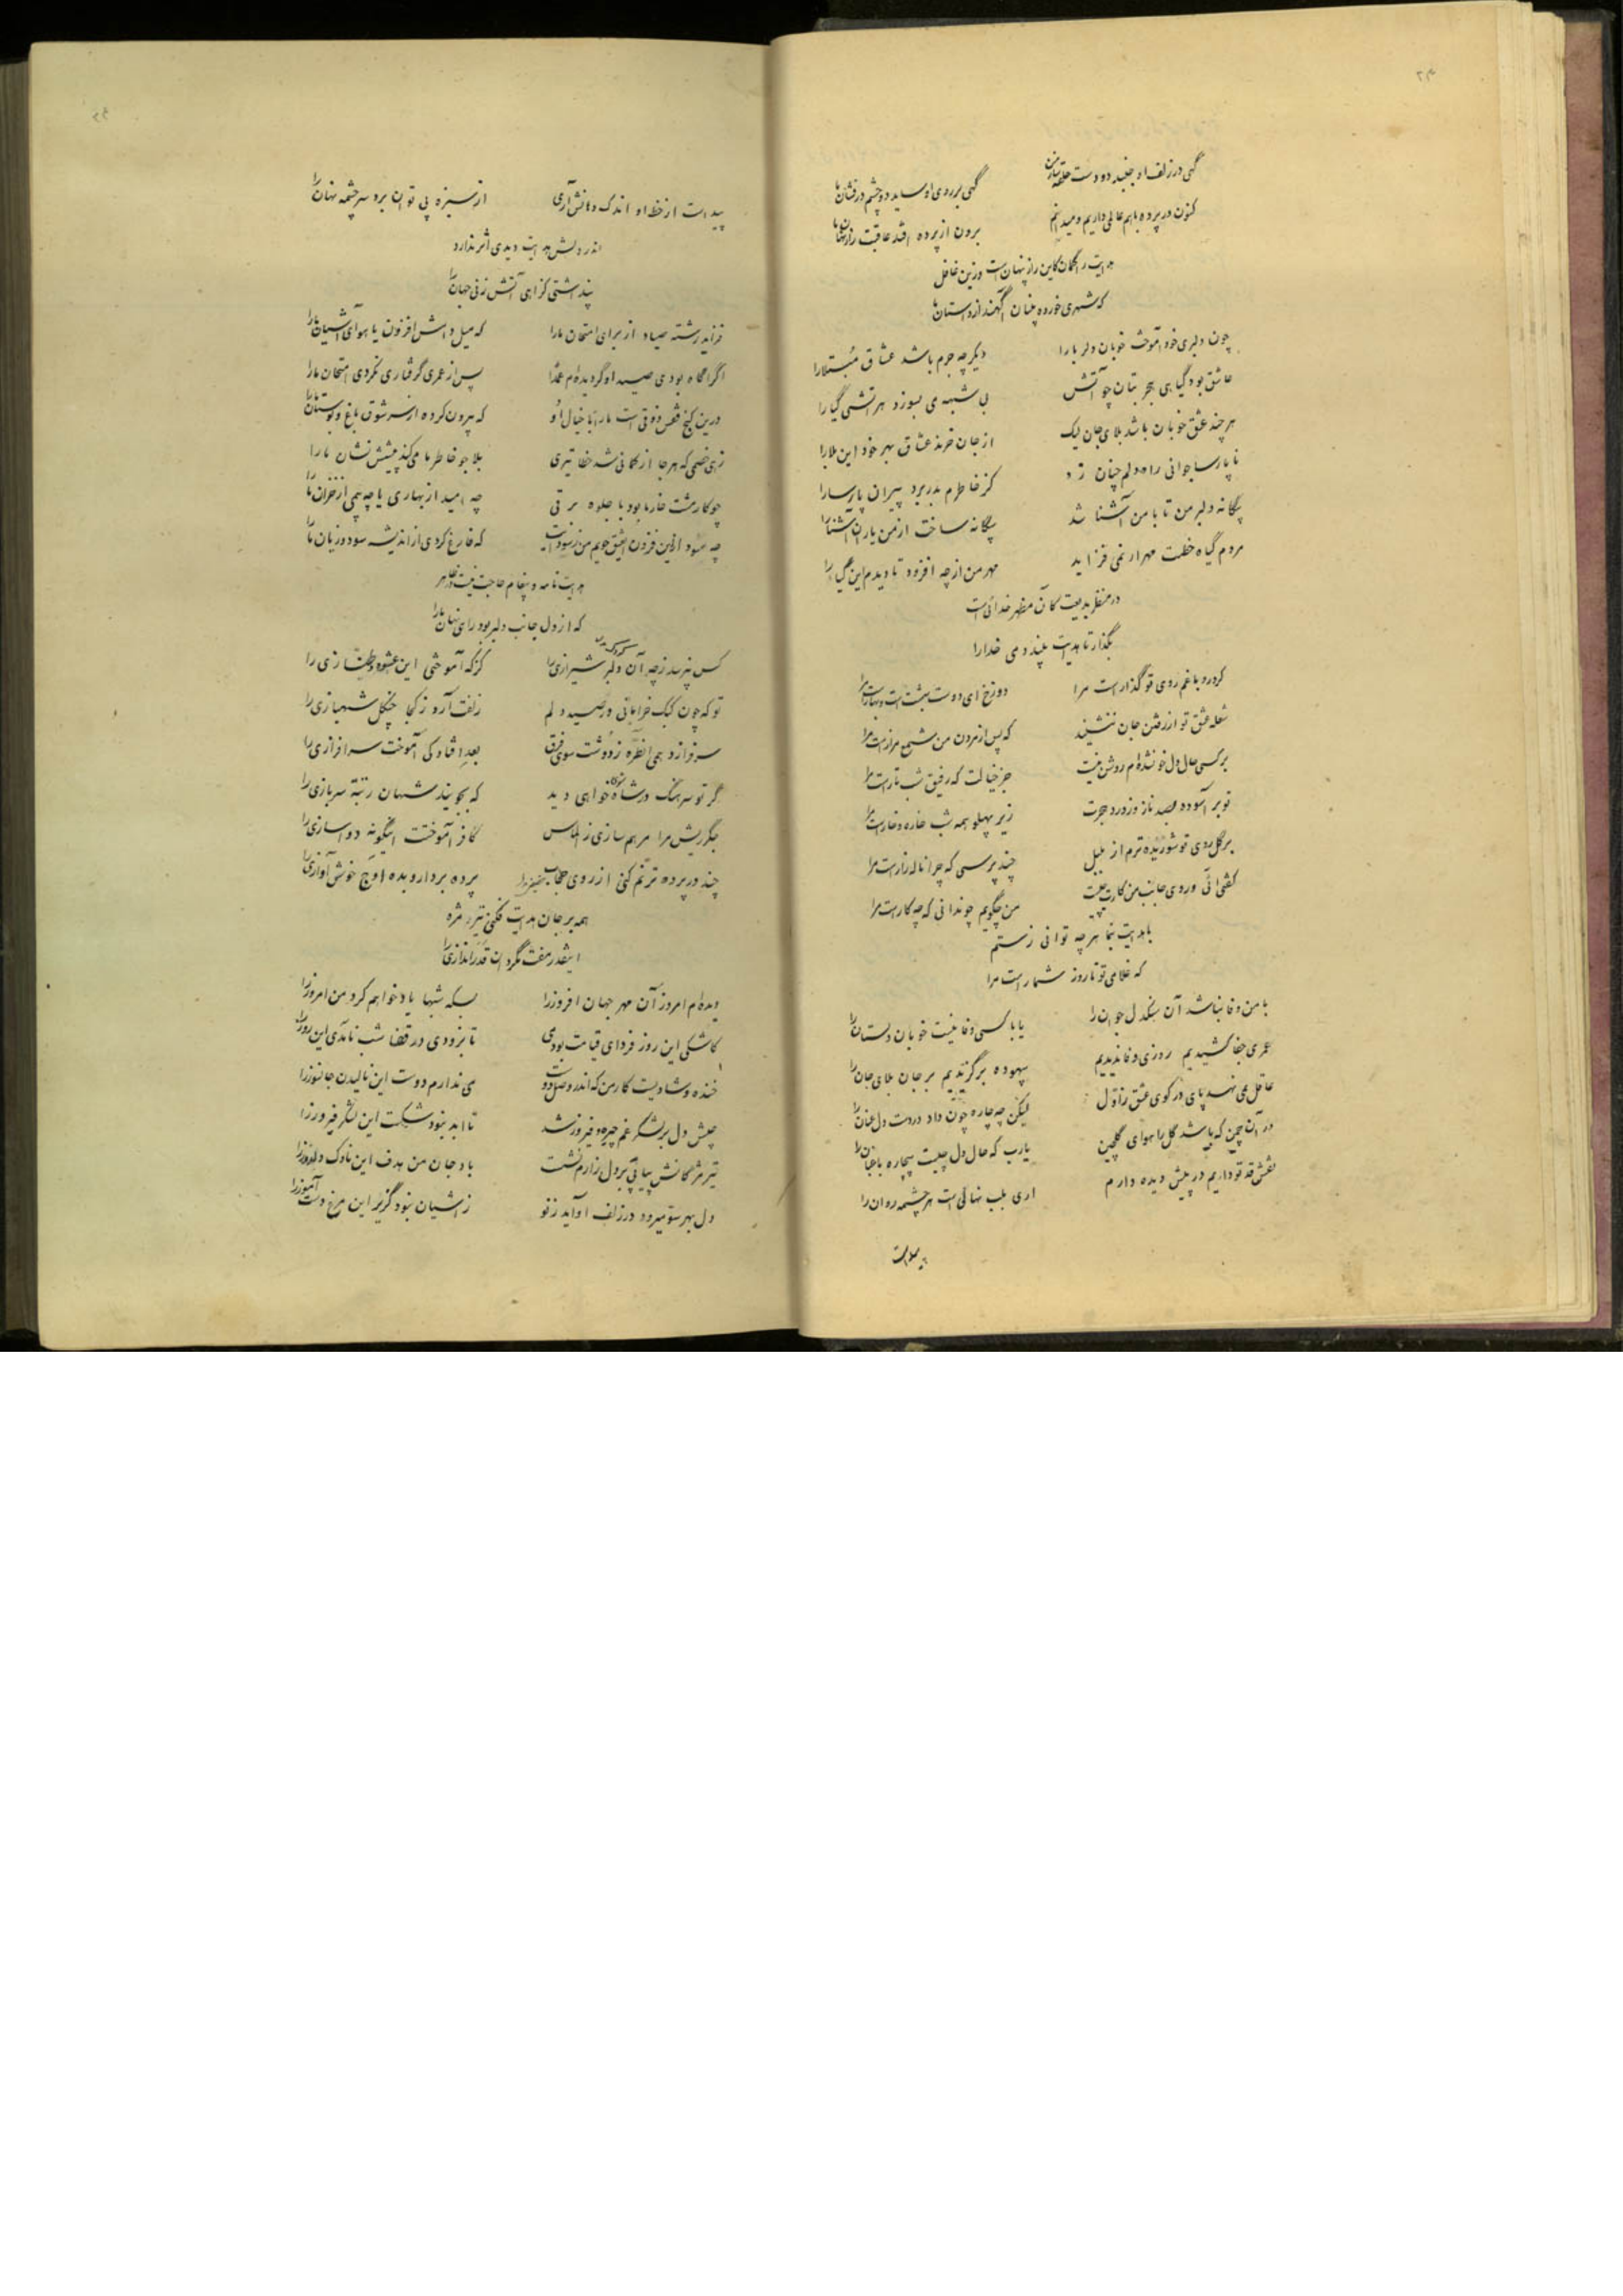 گهی در زلف او جنبد دو دست حلقه
گهی بر روی او ساید دو چشم درفشان ما
کنون در پرده باهم عالمی داریم و میدانم
برون از پرده افتد عاقبت راز نهان ما
هدایت را گمان کاین راز پنهان است وزین غافل
که شهری خورده پنهان آگهند از داستان ما
چون دلبری خود آموخت خوبان دلربا را
دیگر چه جرم باشد عشاق مبتلا را
عاشق بود گیاهی هجر بتان چو آتش
بی شبهه‌ی بسوزد هر آتشی گیا را
هر چند عشق خوبان باشد بلای جان لیک
از جان خرند عشاق بهر خود این بلا را
تا پارسا جوانی راه دلم چنان زد
کز خاطرم بدر برد پیران پارسا را
بیگانه دلبر من تا با من آشنا شد
بیگانه ساخت از من یاران آشنا را
مردم گیاه خطت مهر ار نمی فزاید
مهر من از چه افزود تا دیدم این گیا را
در منظر بدیعت کان مظهر خدائی است
بگذار تا هدایت بیند دمی خدا را
کرد رو با غم روی تو گذار است مرا
دوزخ ای دوست بهشت است و بهار است مرا
شعله عشق تو از رفتن جان ننشیند
که پس از مردن من شمع مزار است مرا
بر کسی حال دل خونشده‌ام روشن نیست
جز خیالت که رفیق شب تار است مرا
تو بر آسوده بصد ناز و ز درد هجرت
زیر پهلو همه شب خاره و خار است مرا
بر گل روی تو شوریده ترم از بلبل
چند پرسی که چرا ناله زار است مرا
گفتی آئی و روی جانب من کارت چیست
من چگویم چو ندانی که چه کار است مرا
با هدایت بنما هر چه توانی ز ستم
که غلامی تو تا روز شمار است مرا
با من وفا نباشد آن سنگدل جوان را
یا با کسی وفا نیست خوبان دلستان را
عمری جفا کشیدیم روزی وفا ندیدیم
بیهوده برگزیدیم بر جان بلای جان را
عاقل نمی نهد پای در کوی عشق ز اول
لیکن چه چاره چون داد در دست دل عنان را
در آن چمن که باشد گل را هوای گلچین
یارب که حال دل چیست بیچاره باغبان را
نقش قد تو داریم در پیش دیده دارم
اری بلب نهالی است هر چشمه روان را
پیداست
پیداست از خط او اندک دهانش آری
از سبزه پی توان برد سرچشمه نهان را
اندر دلش هدایت دیدی اثر ندارد
پنداشتی کز آهی آتش زنی جهان را
فزاید رشته صیاد از برای امتحان ما را
که میل دامش افزون یا هوای آشیان ما را
اگر آگاه بودی صید او گردیده‌ام عمدا
پس از عمری گرفتاری نکردی امتحان ما را
درین کنج قفس ذوقی است ما را با خیال او
که بیرون کرده از سر شوق باغ و بوستان ما را
زهی خصمی که هر جا از کمانی شد خطا تیری
بلا جو خاطر ما می کند پیشش نشان ما را
چو کار مشت خار ما بود با جلوه برقی
چه امید از بهاری یا چه بیمی از خزان ما را
چه سود از این فزون ای عشق جویم من ز سودایت
که فارغ کردی از اندیشه سود و زیان ما را
هدایت نامه و پیغام حاجت نیست در ظاهر
که از دل جانب دلبر بود راهی نهان ما را
کس نپرسد ز چه آن دلبر شیرازی را
کز که آموختی این عشوه و طنازی را
تو که چون کبک خرامانی در صید دلم
زلفت آرد ز کجا چنگل شهبازی را
سر فرازد همی آن طره ز دوشت سوی فرق
بعد افتادگی آموخت سرافرازی را
گر تو سرهنگ در شاه خواهی دید
که بجویند شهان رتبه سربازی را
جگر ریش مرا مرهم سازی ز الماس
کافر آموختت اینگونه دواسازی را
چند در پرده ترنم کنی از روی حجاب
پرده بردار و بده اوج خوش آوازی را
همه بر جان هدایت فکنی تیر مژه
اینقدر مفت مگردان قدراندازی را
دیده‌ام امروز آن مهر جهان افروز را
بسکه شبها یاد خواهم کرد من امروز را
کاشکی این روز فردای قیامت بودی
تا نزودی در قضا شب نامدی این روز را
خنده و شادیست کار من که اندر وصل دوست
می ندارم دوست این نالیدن جانسوز را
جیش دل بر لشکر غم چیره و فیروز شد
تا ابد نبود شکست این لشکر فیروز را
تیر مژگانش پیاپی بر دل زارم نشست
باد جان من هدف این ناوک دلدوز را
دل بهر سو میرود در زلف او آید ز نو
ز آشیان نبود گزیر این مرغ دست آموز را